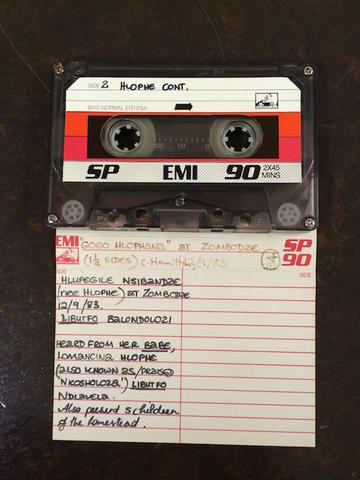 SIDE 2 HLOPHE CONT.
BIAS NORMAL EQ120µs
100 50 0
SP EMI 90 2X45 MINS
EMI "GOGO HLOPHANA" AT ZOMBODZE SP 90
(1½ SIDES) C. Hamilton 12/9/83
SIDE SIDE
HLUPEGILE NSIBANDZE
(nee HLOPHE) AT ZOMBODZE
12/9/83.
LIBUTFO BALONDOLOZI
HEARD FROM HER BABE,
LOMANCINA HLOPHE
(ALSO KNOWN AS/PRAISED
'NKOSHOLOZA') LIBUTFO
NDLAVELA.
Also present 5 children
of the homestead.